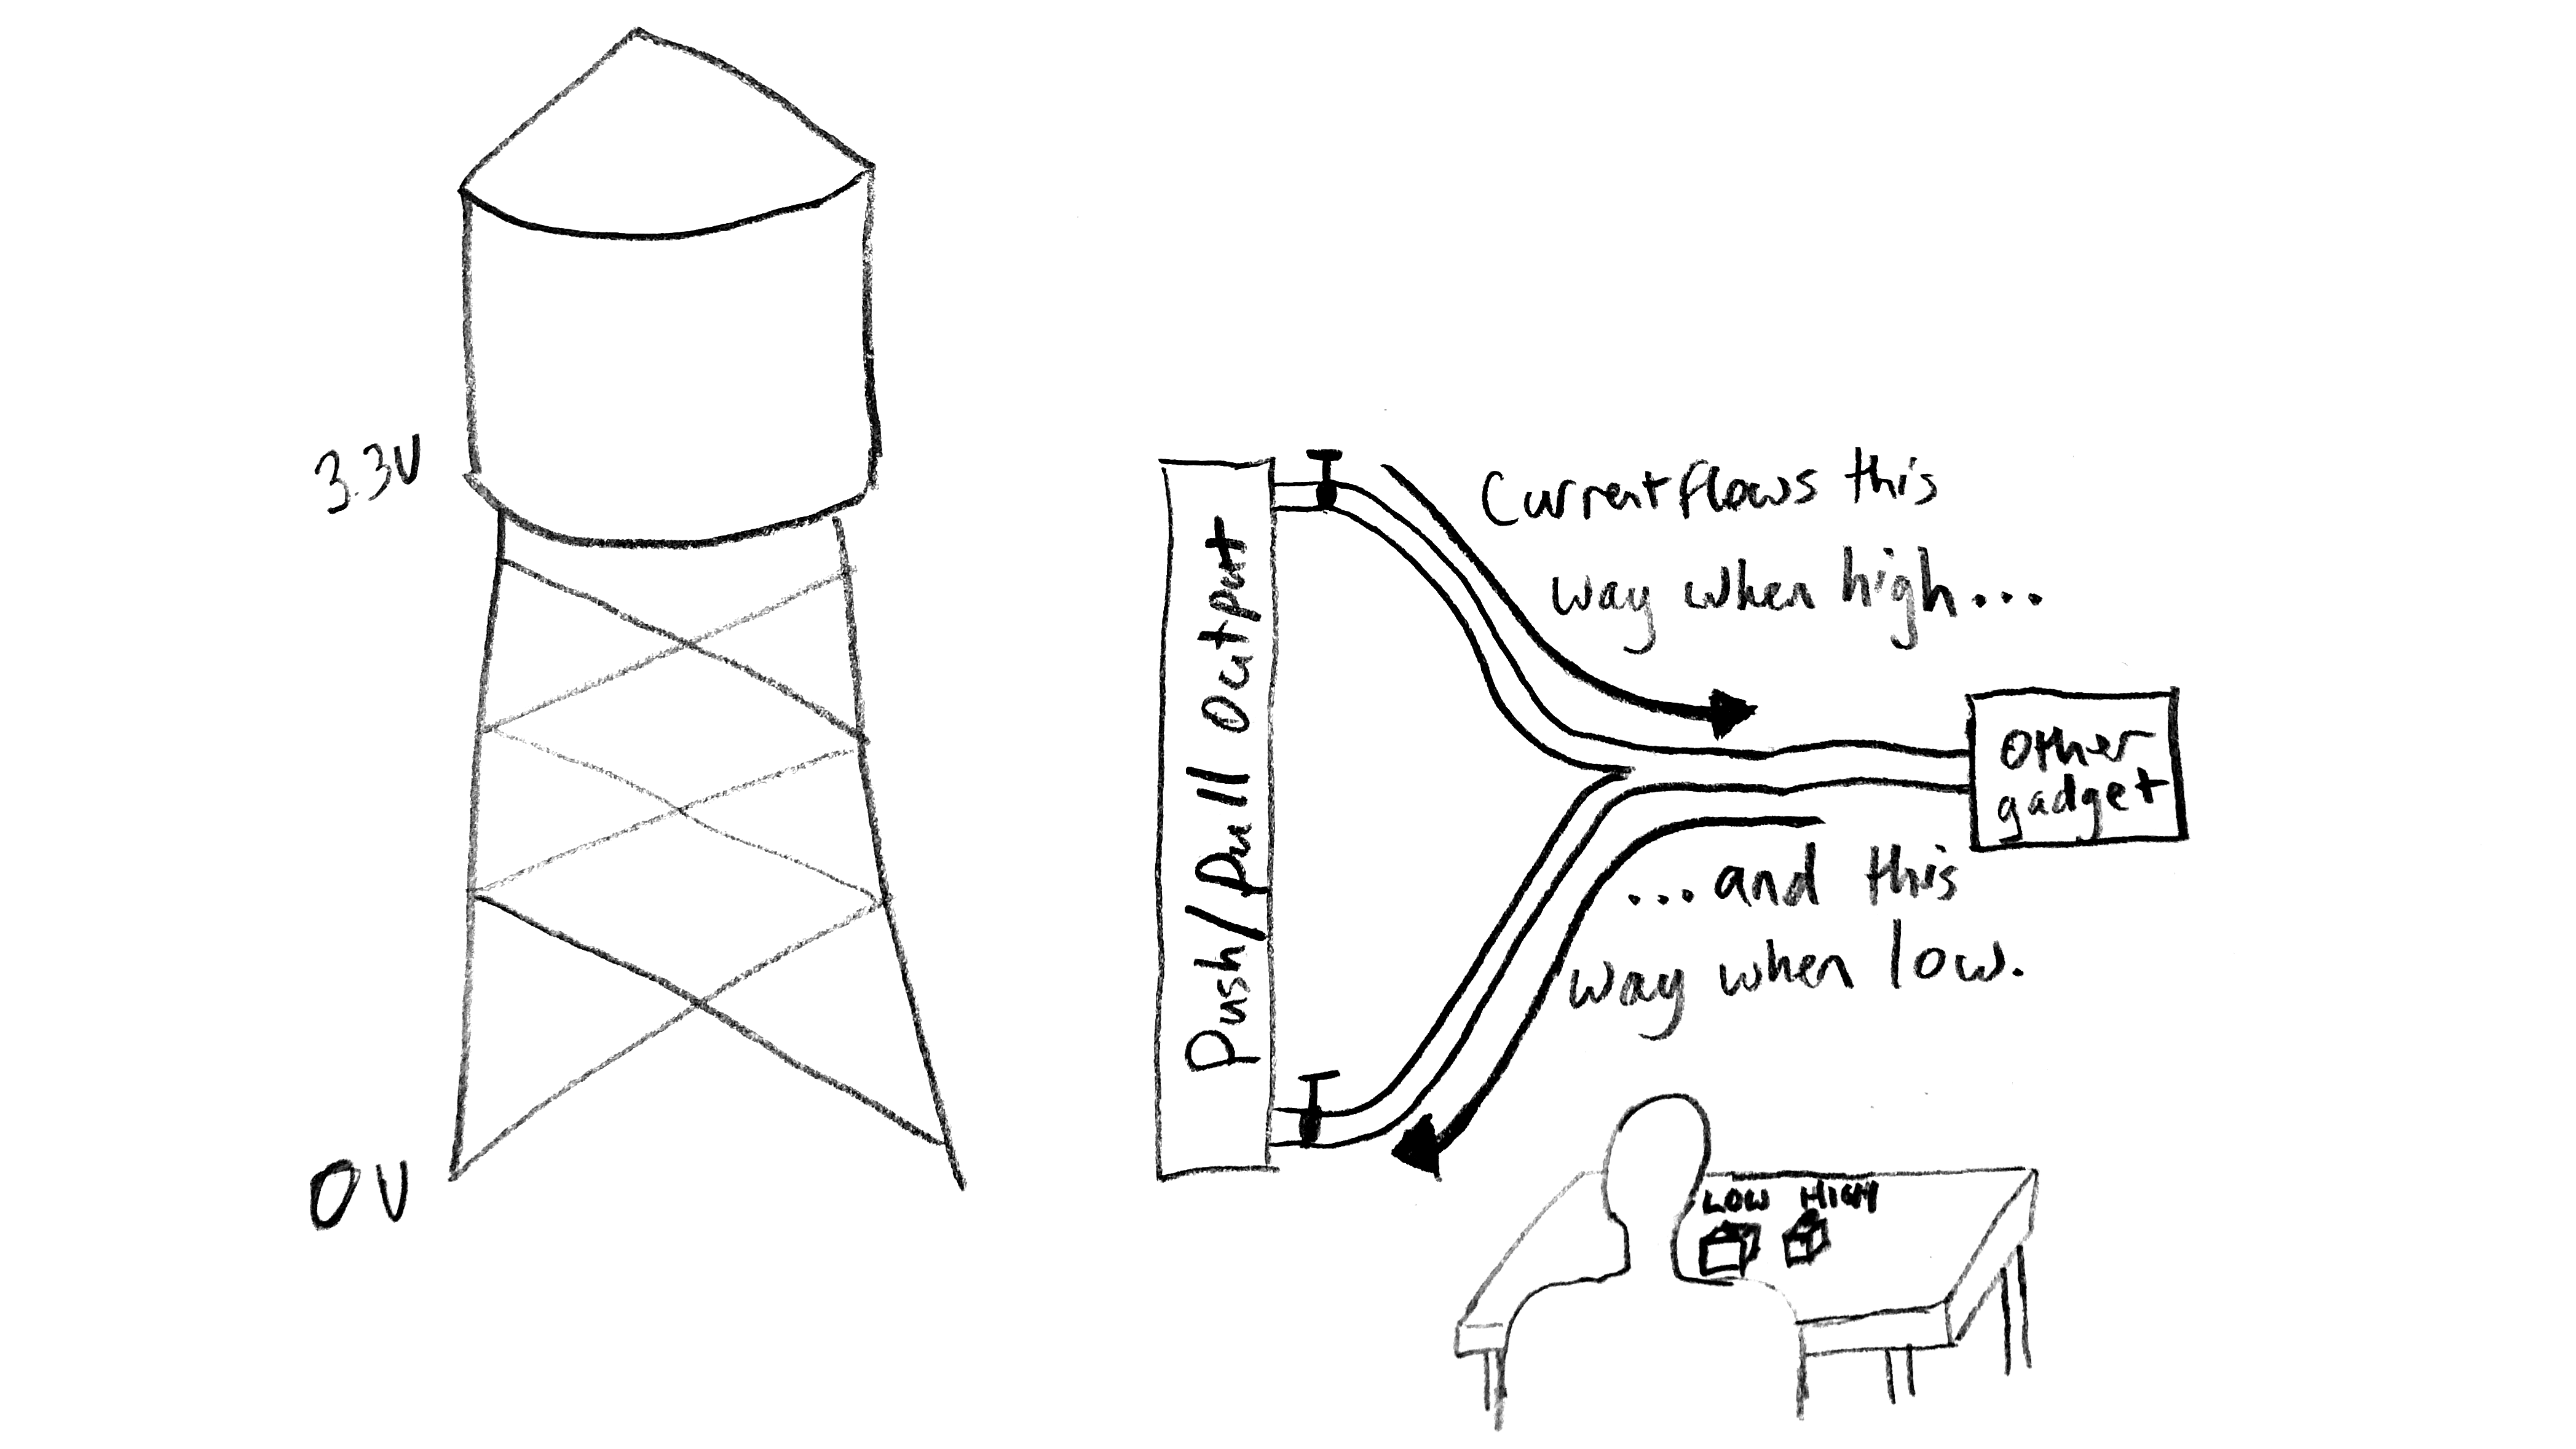 3.3V
0V
Push/Pull Output
Current flows this
way when high...
Other
gadget
...and this
way when low.
LOW HIGH